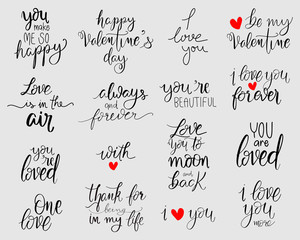 you
make
ME SO
happy
happy
Valentine's
day
I
love
you
be my
Valentine
Love
is in the
air
always
and
forever
you're
BEAUTIFUL
i love you
forever
you're
loved
with
Love
you to
moon
and
back
YOU
ARE
loved
One
love
thank for
being
in my life
i you
I love
you
more